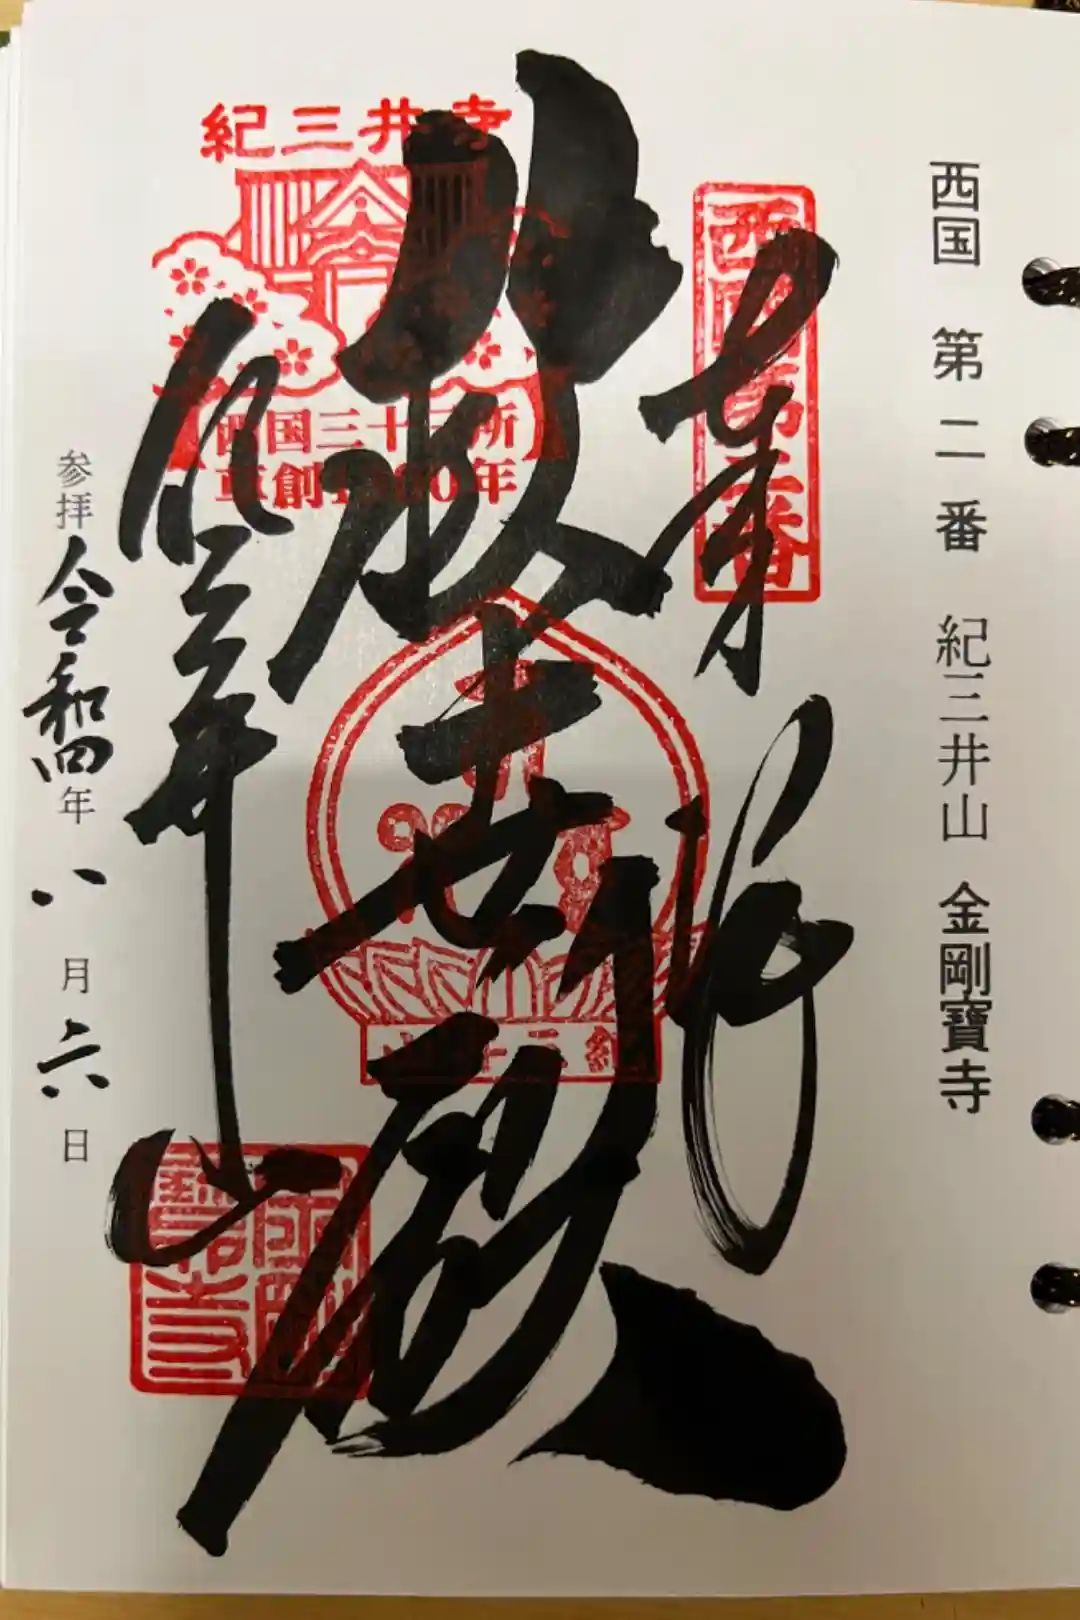 西国 第二番 紀三井山 金剛寶寺
西国第二番
奉拝
救世殿
紀三井寺
西国三十三所
草創1300年
紀三井山
紀三井山
金剛
寶寺
参拝 令和四年 八月 六日